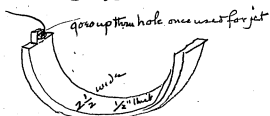 goes up thru hole, once used for jet
2 1/2 wide
1/2" thick